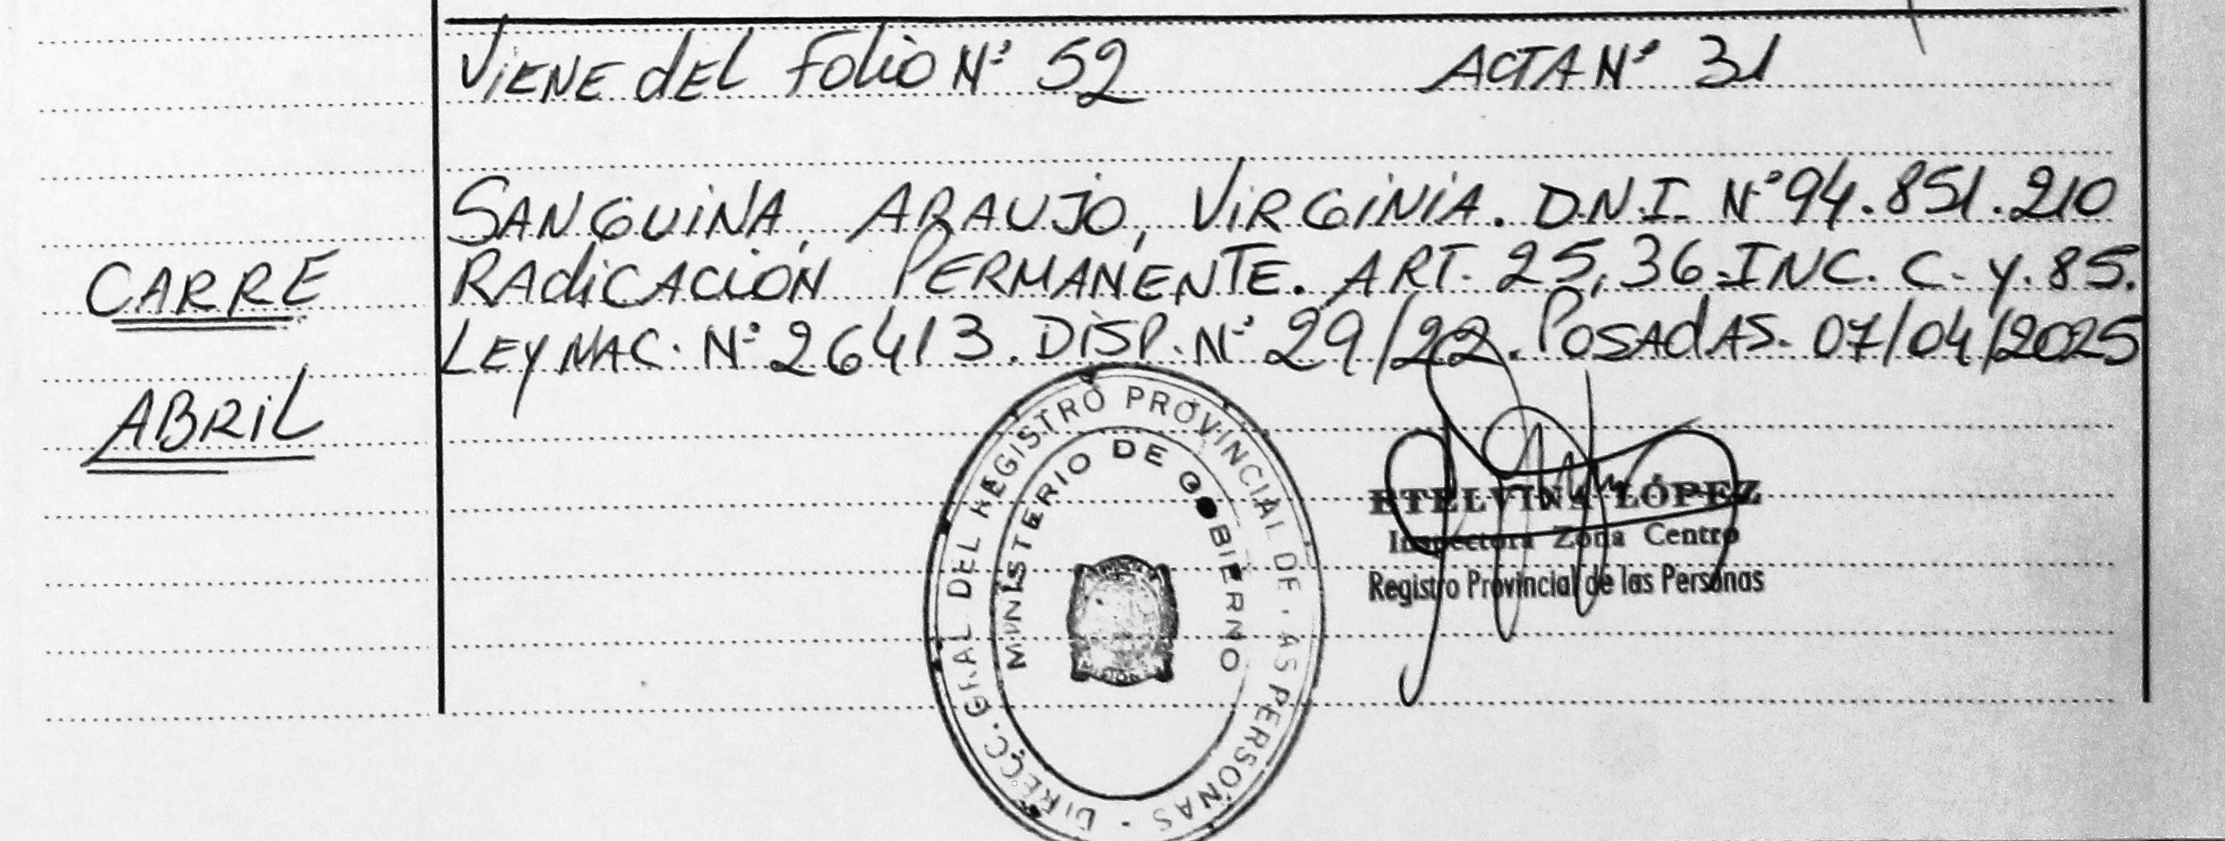 ViENE dEL FoLio Nº 52 ACTA Nº 31
SANGUiNA, ARAUJO, ViRGiNiA. D.N.I. Nº 94.851.210
RAdiCACiÓN PERMANENTE. ART. 25, 36 INC. C. y. 85.
LEy NAC. Nº 26413. DiSP. Nº 29/22. POSAdAS. 07/04/2025
CARRE
ABRiL
DIRECC. GRAL DEL REGISTRO PROVINCIAL DE LAS PERSONAS
MINISTERIO DE GOBIERNO
ETELVINA LÓPEZ
Inspectora Zona Centro
Registro Provincial de las Personas